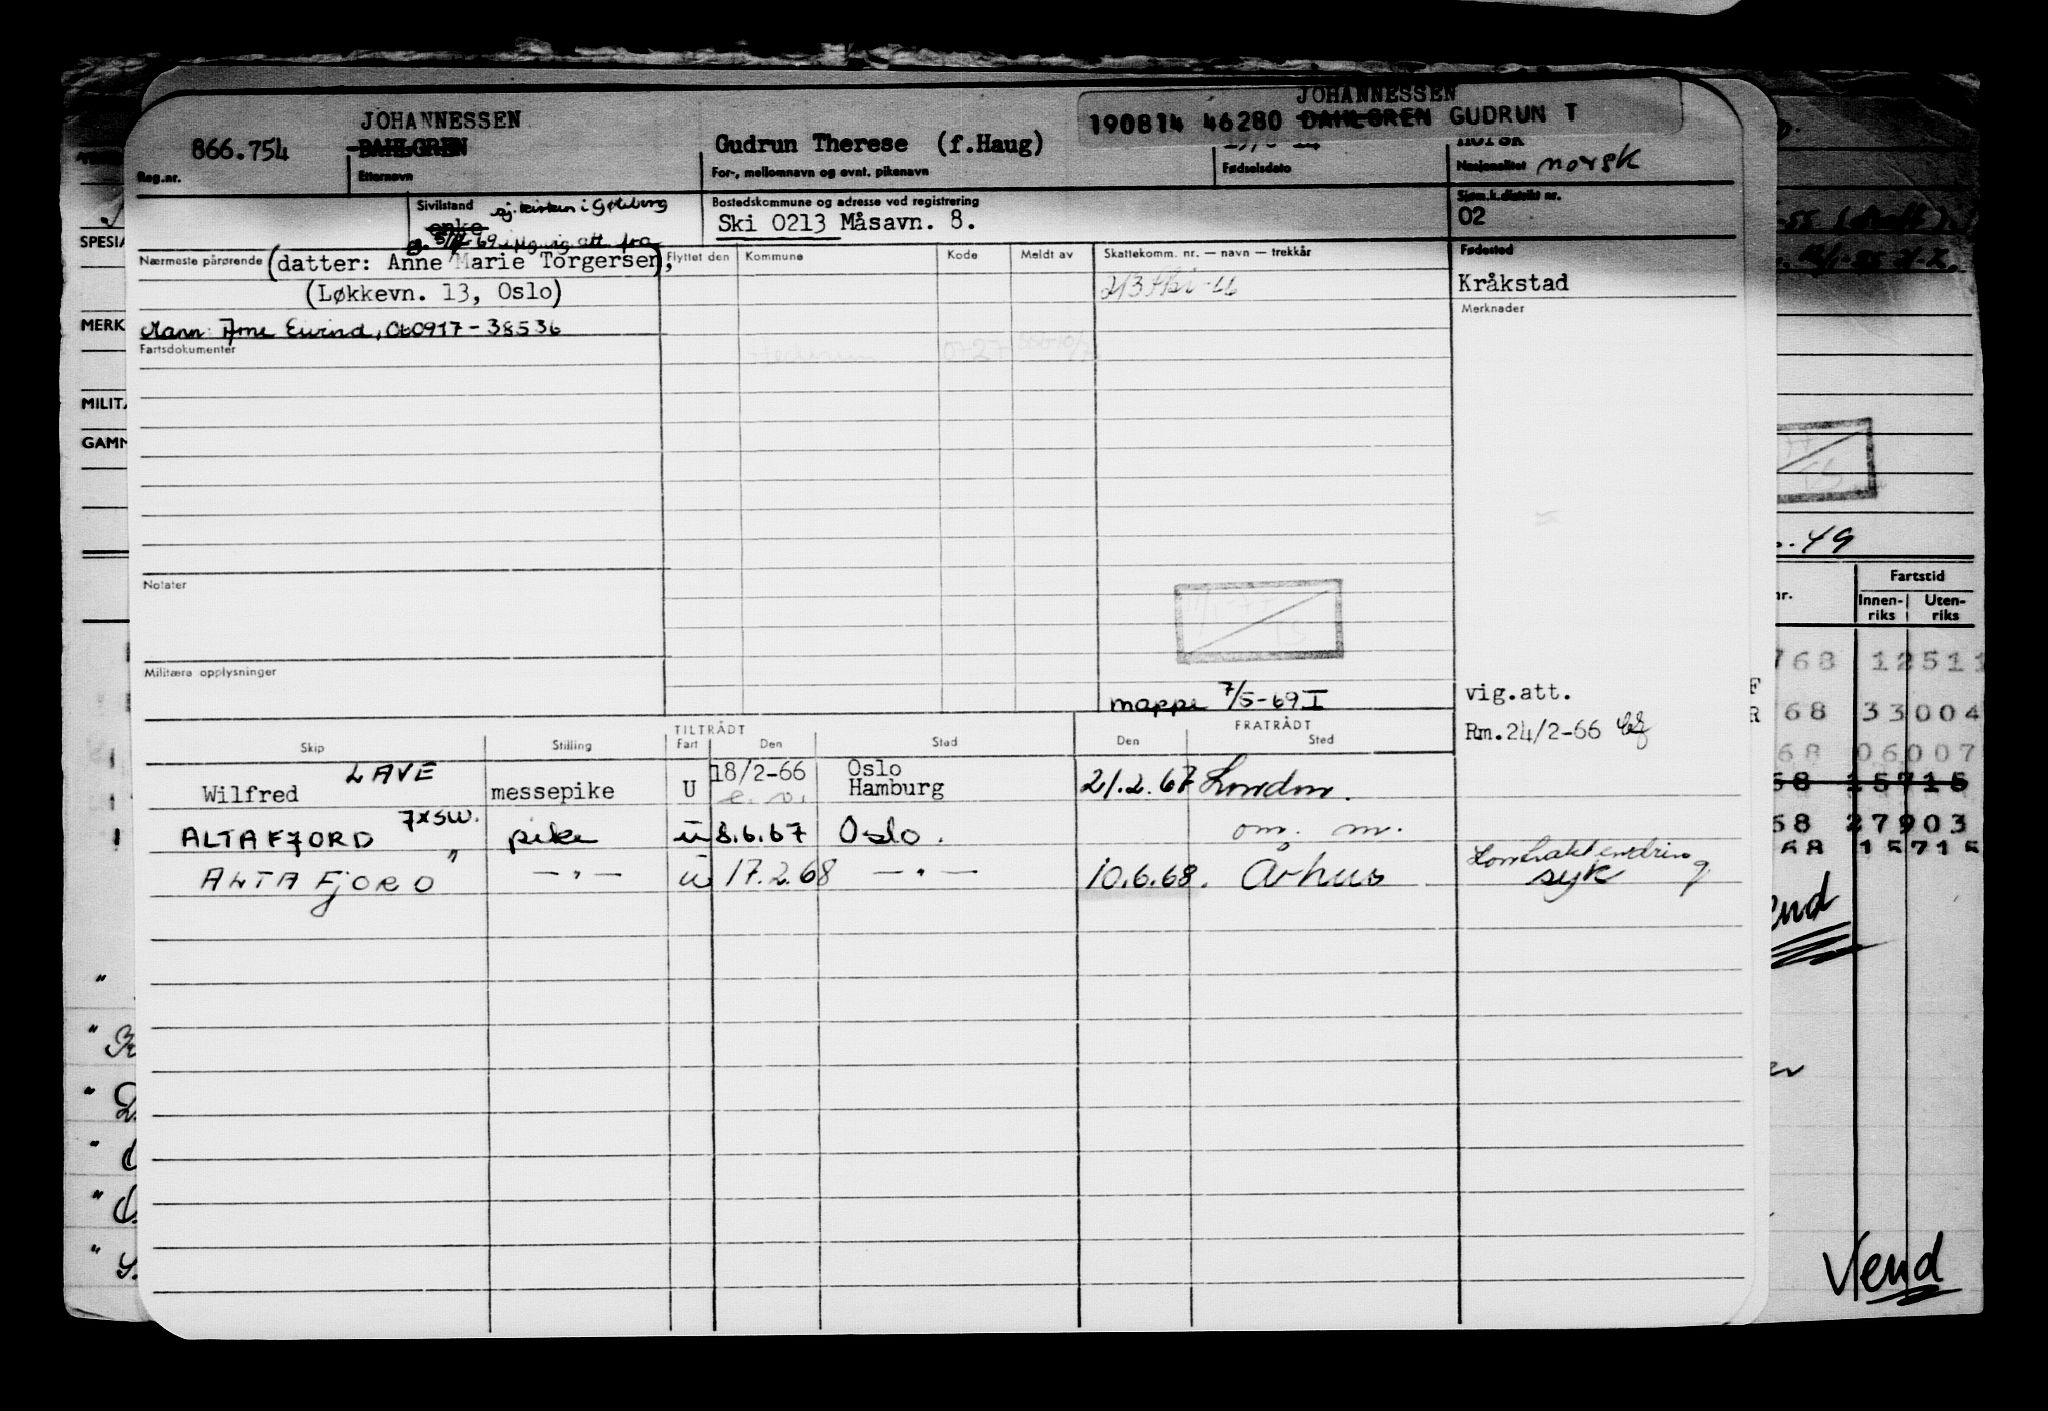 JOHANNESSEN
190814 46280 DAHLGREN GUDRUN T
866.754
JOHANNESSEN
DAHLGREN
Gudrun Therese (f.Haug)
norsk
Reg.nr.
Etternavn
For-, mellomnavn og evnt. pikenavn
Fødselsdato
Nasjonalitet norsk
Sivilstand
enke
Bostedskommune og adresse ved registrering
Ski 0213 Måsavn. 8.
Sjøm.k.distrikt nr.
02
Nærmeste pårørende (datter: Anne Marie Torgersen,
(Løkkevn. 13, Oslo)
Mann: Arne Eivind, 060917-38536
Flyttet den
Kommune
Kode
Meldt av
Skattekomm. nr. — navn — trekkår
213 Ski -66
Fødested
Kråkstad
Merknader
Fartsdokumenter
Notater
Militære opplysninger
mappe 7/5-69 I
vig.att.
Rm.24/2-66
TILTRÅDT
FRATRÅDT
Skip
Stilling
Fart
Den
Sted
Den
Sted
Wilfred LAVE messepike U 18/2-66 Oslo Hamburg 21.2.67 London.
ALTAFJORD 7XSW. pike U 8.6.67 Oslo. om. m.
ALTAFJORD " —"— U 17.2.68 —"— 10.6.68. Århus
Kontraktendring
syk
SPESIA
MERK
MILITÆ
GAMM
. 49
nr.
Fartstid
Innen-
riks
Uten-
riks
768 12511
68 33004
68 06007
68 15715
68 27903
68 15715
Vend